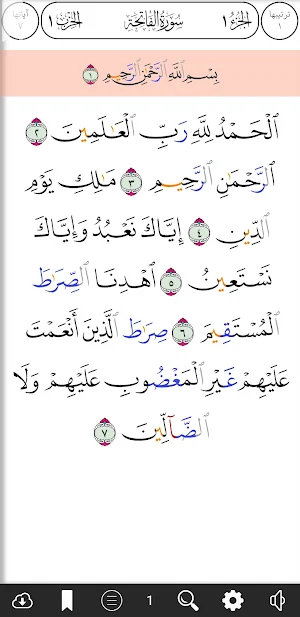 ترتيبها ١ الجزء ١ سورة الفاتحة الحزب ١ آياتها ٧
بِسْمِ ٱللَّهِ ٱلرَّحْمَٰنِ ٱلرَّحِيمِ ١
ٱلْحَمْدُ لِلَّهِ رَبِّ ٱلْعَٰلَمِينَ ٢
ٱلرَّحْمَٰنِ ٱلرَّحِيمِ ٣ مَٰلِكِ يَوْمِ
ٱلدِّينِ ٤ إِيَّاكَ نَعْبُدُ وَإِيَّاكَ
نَسْتَعِينُ ٥ ٱهْدِنَا ٱلصِّرَٰطَ
ٱلْمُسْتَقِيمَ ٦ صِرَٰطَ ٱلَّذِينَ أَنْعَمْتَ
عَلَيْهِمْ غَيْرِ ٱلْمَغْضُوبِ عَلَيْهِمْ وَلَا
ٱلضَّآلِّينَ ٧
1